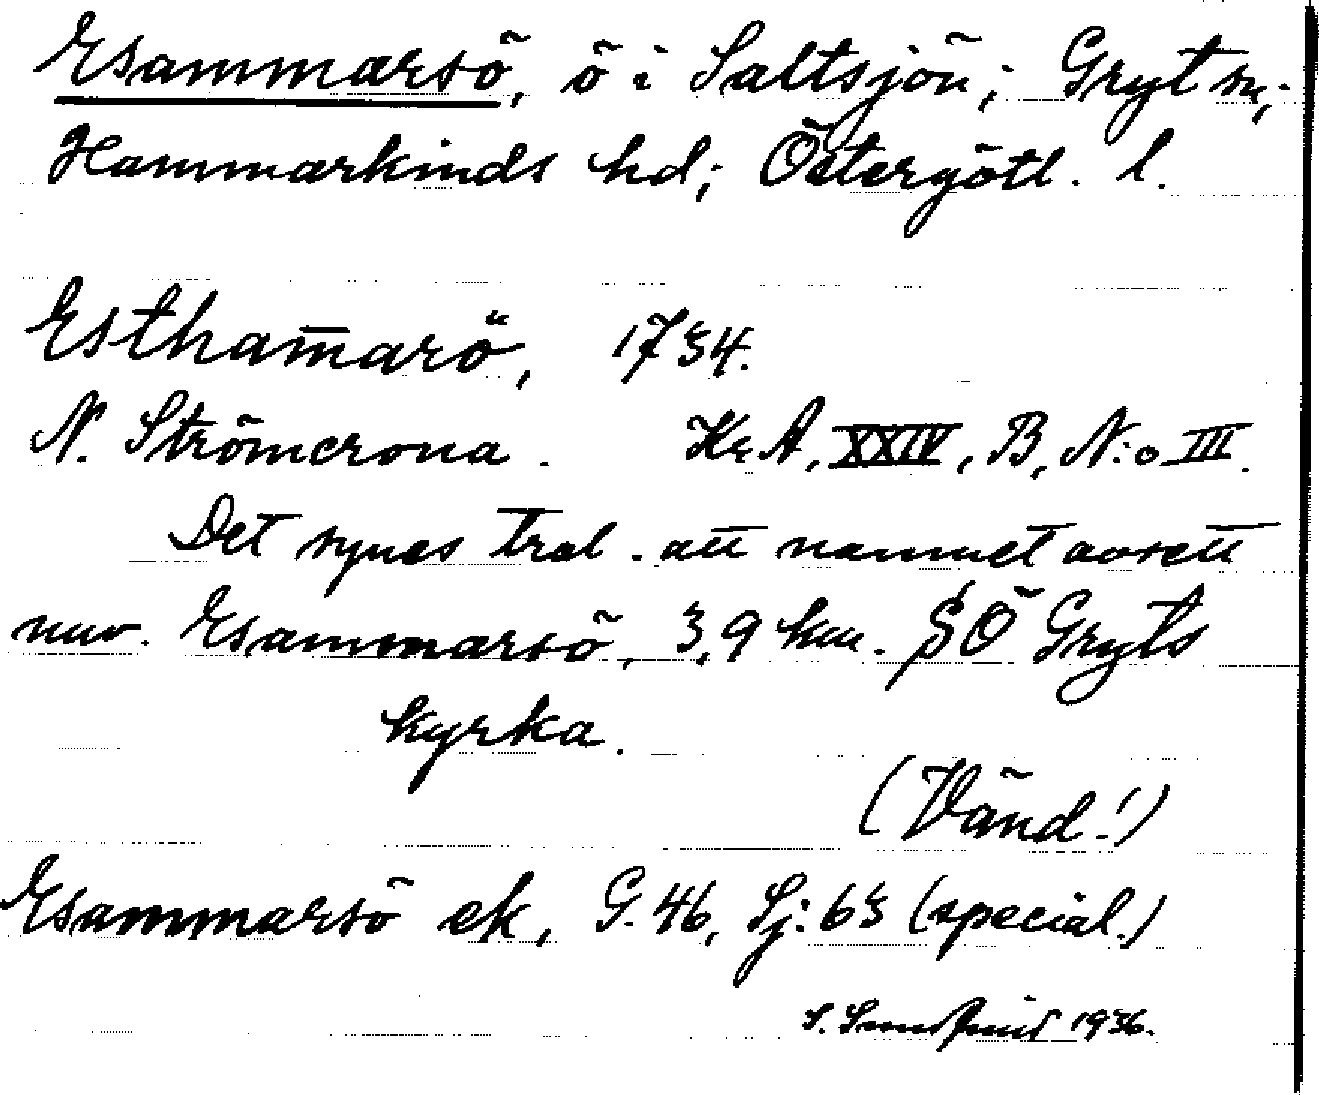 Esammarsö, ö i Saltsjön; Gryt sn;
Hammarkinds hd; Östergötl. l.
Estham̄arö, 1734.
N. Strömcrona. Kr. A, XXIV, B, N:o III.
Det synes tral. att namnet avsett
nuv. Esammarsö, 3,9 km. SÖ Gryts
kyrka.
(Vänd!)
Esammarsö ek, G. 46, Sj: 63 (special.)
S. 1936.